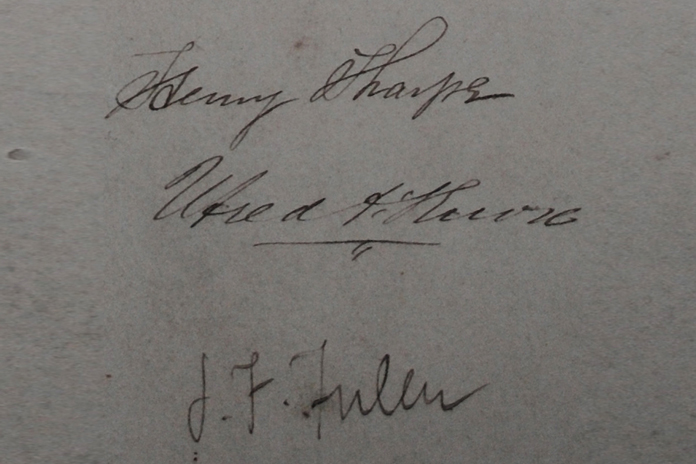 Henry Tharpe
Alfred A. Howe
J. F. Fuller